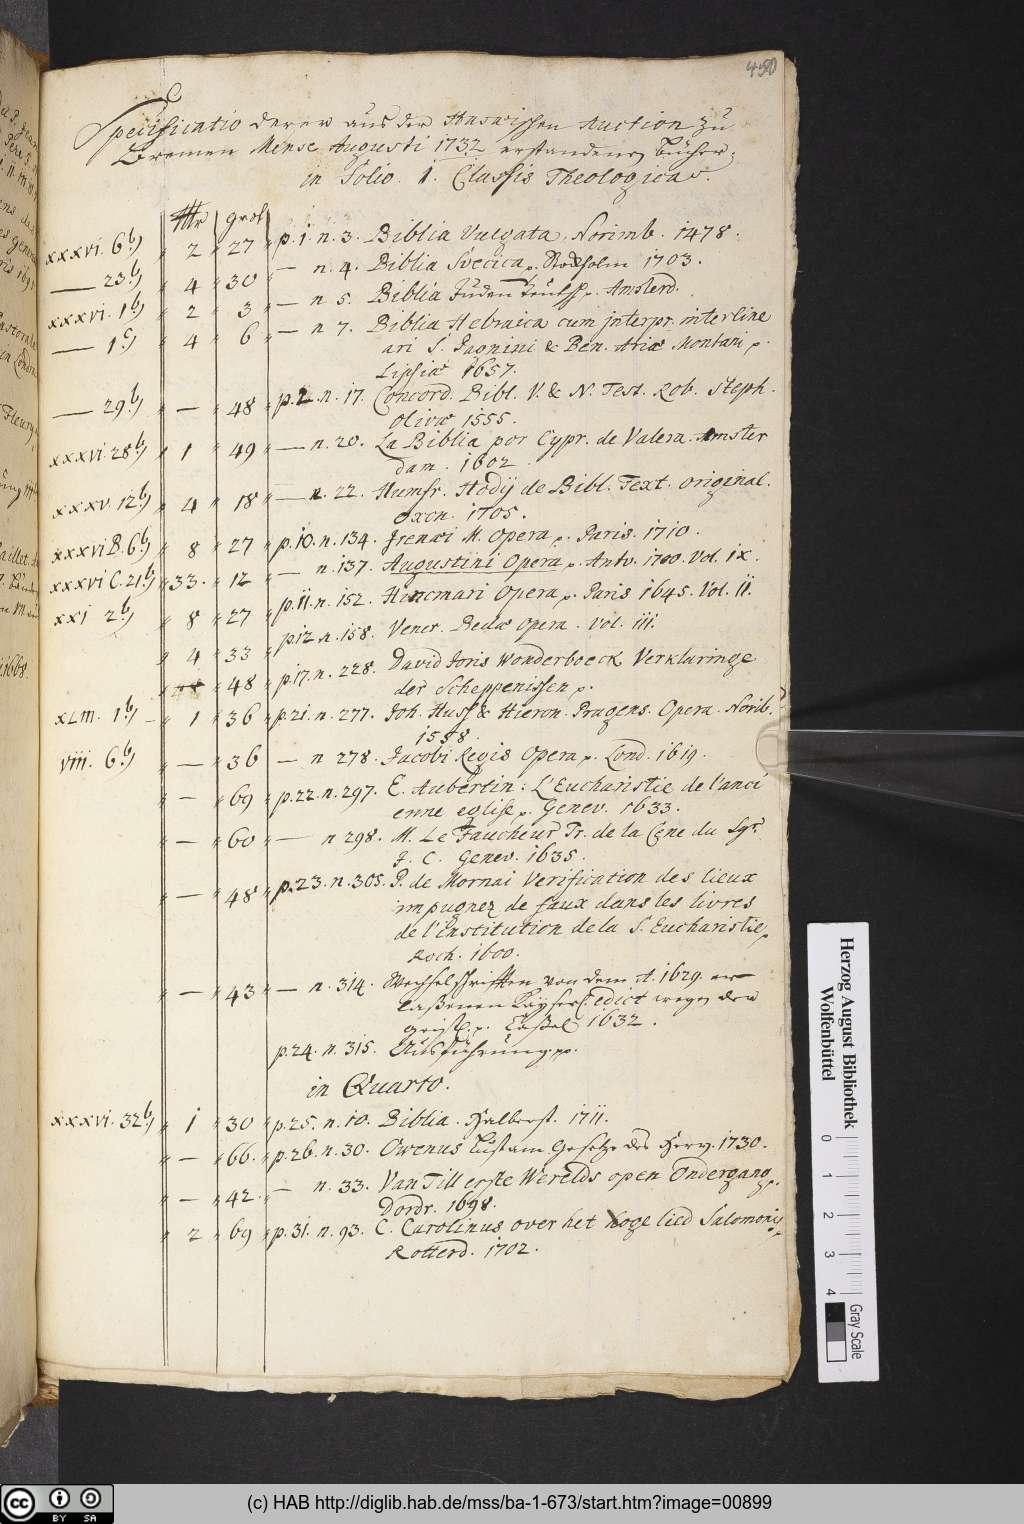 450
C
Specificatio derer aus der Haswischen Auction zu
Bremen Mense Augusti 1732 erstandenen Bücher.
in Folio. 1. Classis Theologicae.
Thlr grot
xxxvi. 6b) 2 27 p. 1. n. 3. Biblia Vulgata. Norimb. 1478.
— 23b) 4 30 — n. 4. Biblia Svecica, Stockholm 1703.
xxxvi. 1b) 2 3 — n 5. Biblia Juden Teutsch. Amsterd.
— 1c) 4 6 — n 7. Biblia Hebraica cum interpr. interline
ari S. Pagnini & Ben. Ariae Montani
Lipsiae 1657.
— 29b) — 48 p. 2. n. 17. Concord. Bibl. V. & N. Test. Rob. Steph.
oliva 1555.
xxxvi 28b) 1 49 — n. 20. La Biblia por Cypr. de Valera. Amster
dam. 1602
xxxv. 12b) 4 18 — n. 22. Humfr. Hody de Bibl. Text. original.
oxon. 1705.
xxxvi B. 6b) 8 27 p. 10. n. 134. Irenaei M. Opera Paris. 1710.
xxxvi C. 21b) 33. 12 — n. 137. Augustini Opera, Antv. 1700. Vol. ix.
xxi 2b) 8 27 p. 11. n. 152. Hincmari Opera Paris 1645. Vol. ii.
4 33 p. 12. n. 158. Vener. Bedae opera. vol. iii.
48 p. 17. n. 228. David Joris Wonderboeck Verklaringe
der Scheppenissen
xLm. 1b) 1 36 p. 21. n. 277. Joh. Huss & Hieron. Pragens. Opera. Norib.
1558.
viii. 6b) — 36 — n 278. Jacobi Regis Opera Lond. 1619.
— 69 p. 22. n. 297. E. Aubertin: L'Eucharistie de l'anci
enne eglise. Genev. 1633.
— 60 — n 298. M. Le Faucheur Tr. de la Cene du Sgr.
J. C. Genev. 1635.
— 48 p. 23. n. 305. P. de Mornai Verification des lieux
impugnez de faux dans les livres
de l'institution de la S. Eucharistie,
Roch. 1600.
— 43 — n. 314. Wechselschrifften von dem A. 1629. er
laßenen Kayserl. edict wegen der
Geistl. Caßel 1632.
p. 24. n. 315. Ausführung
in Quarto.
xxxvi. 32b) 1 30 p. 25. n. 10. Biblia. Halberst. 1711.
— 66. p. 26. n. 30. Owenus Gesetze des 1730.
— 42. — n. 33. Van Till erste Werelds open Ondergang
Dordr. 1698.
2 69 p. 31. n. 93. C. Carolinus over het hoge lied Salomonis
Rotterd. 1702.
Herzog August Bibliothek
Wolfenbüttel
0 1 2 3 4
Gray Scale
cc BY SA
(c) HAB http://diglib.hab.de/mss/ba-1-673/start.htm?image=00899